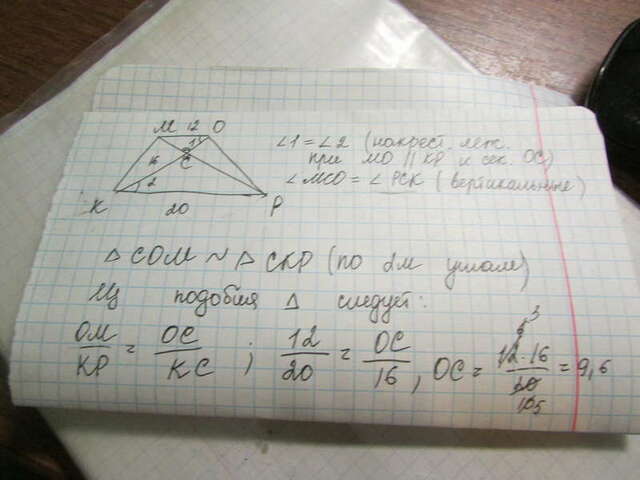 M 12 O
1
16
C
2
K 20 P
∠1 = ∠2 (накрест. леж.
при MO || KP и сек. OC)
∠MCO = ∠PCK (вертикальные)
△COM ~ △CKP (по 2м углам)
Из подобия △ следует:
OM/KP = OC/KC ; 12/20 = OC/16 , OC = 12·16/20 = 9,6